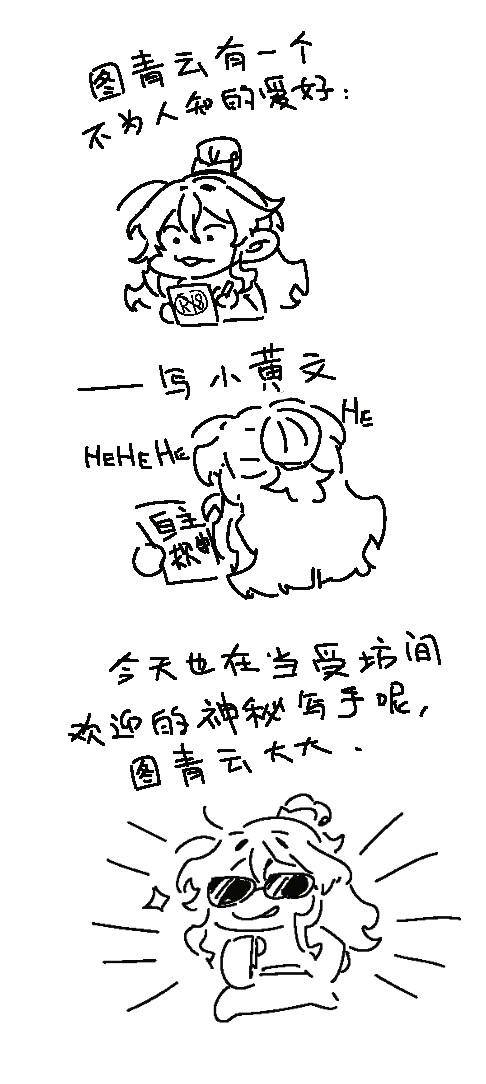 图青云有一个
不为人知的爱好：
R18
——写小黄文
HE
HEHEHE
自主
今天也在当受坊间
欢迎的神秘写手呢，
图青云大大.